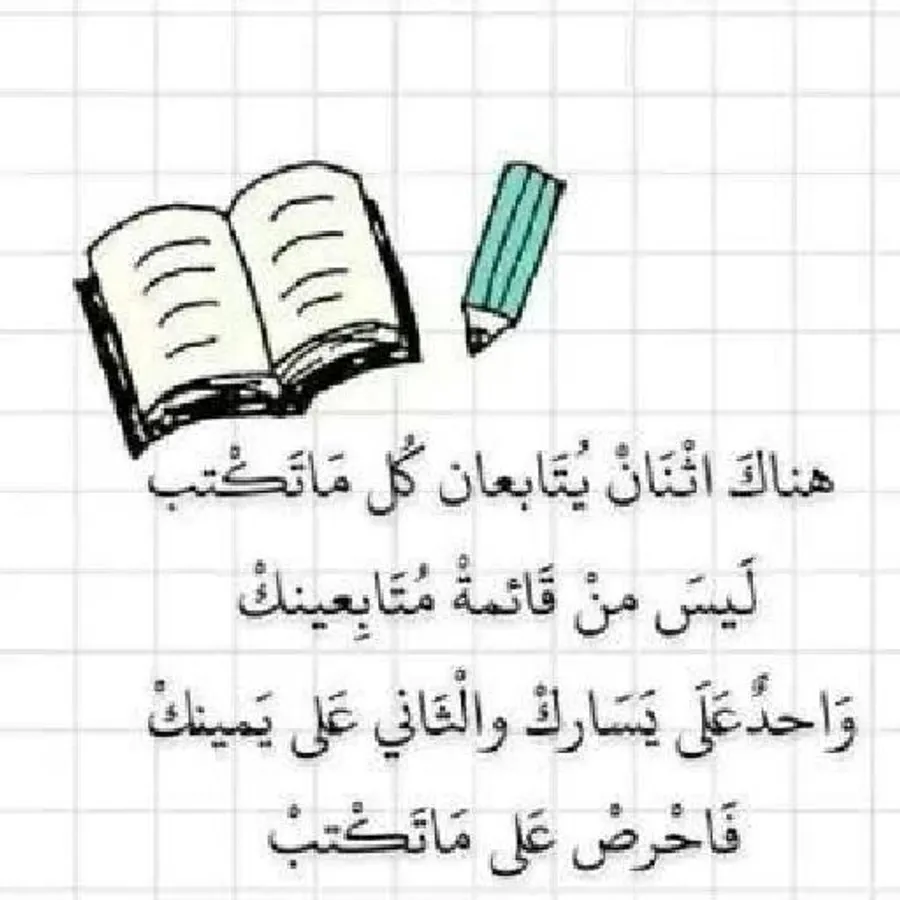 هناكَ اثْنَانْ يُتَابعان كُل مَاتَكْتب
لَيسَ منْ قَائمةْ مُتَابِعينكْ
وَاحدٌ عَلَى يَسَاركْ والْثَاني عَلى يَمينكْ
فَاحْرصْ عَلى مَاتَكْتبْ